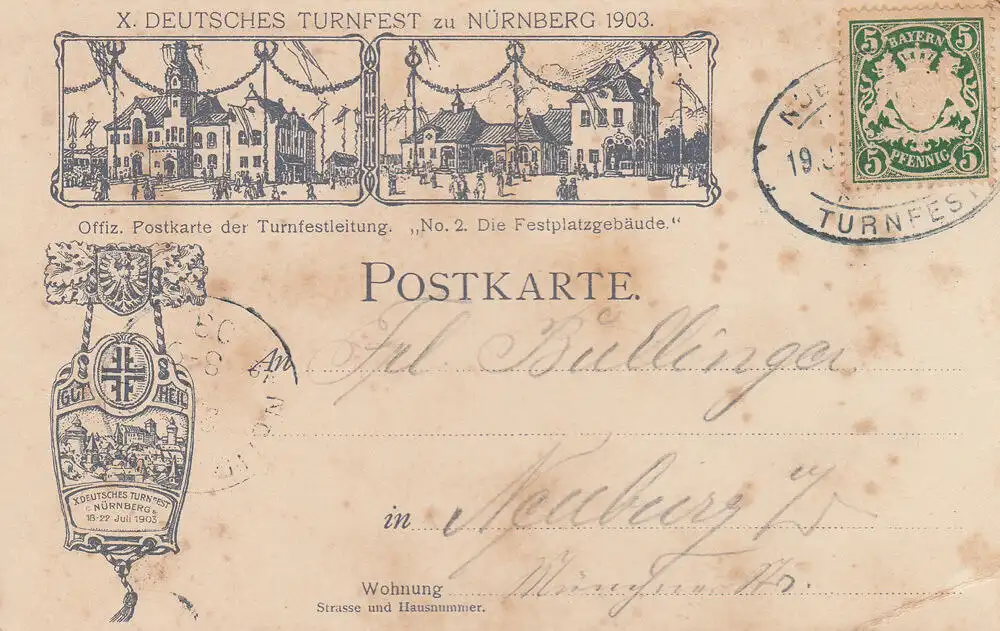 X. DEUTSCHES TURNFEST ZU NÜRNBERG 1903.
BAYERN
5 5
5 PFENNIG 5
19.
TURNFEST
Offiz. Postkarte der Turnfestleitung. „No. 2. Die Festplatzgebäude."
POSTKARTE.
An Frl Bullinger
GUT HEIL
X DEUTSCHES TURNFEST
NÜRNBERG
18-22 Juli 1903
in Neuburg
Wohnung
Strasse und Hausnummer.